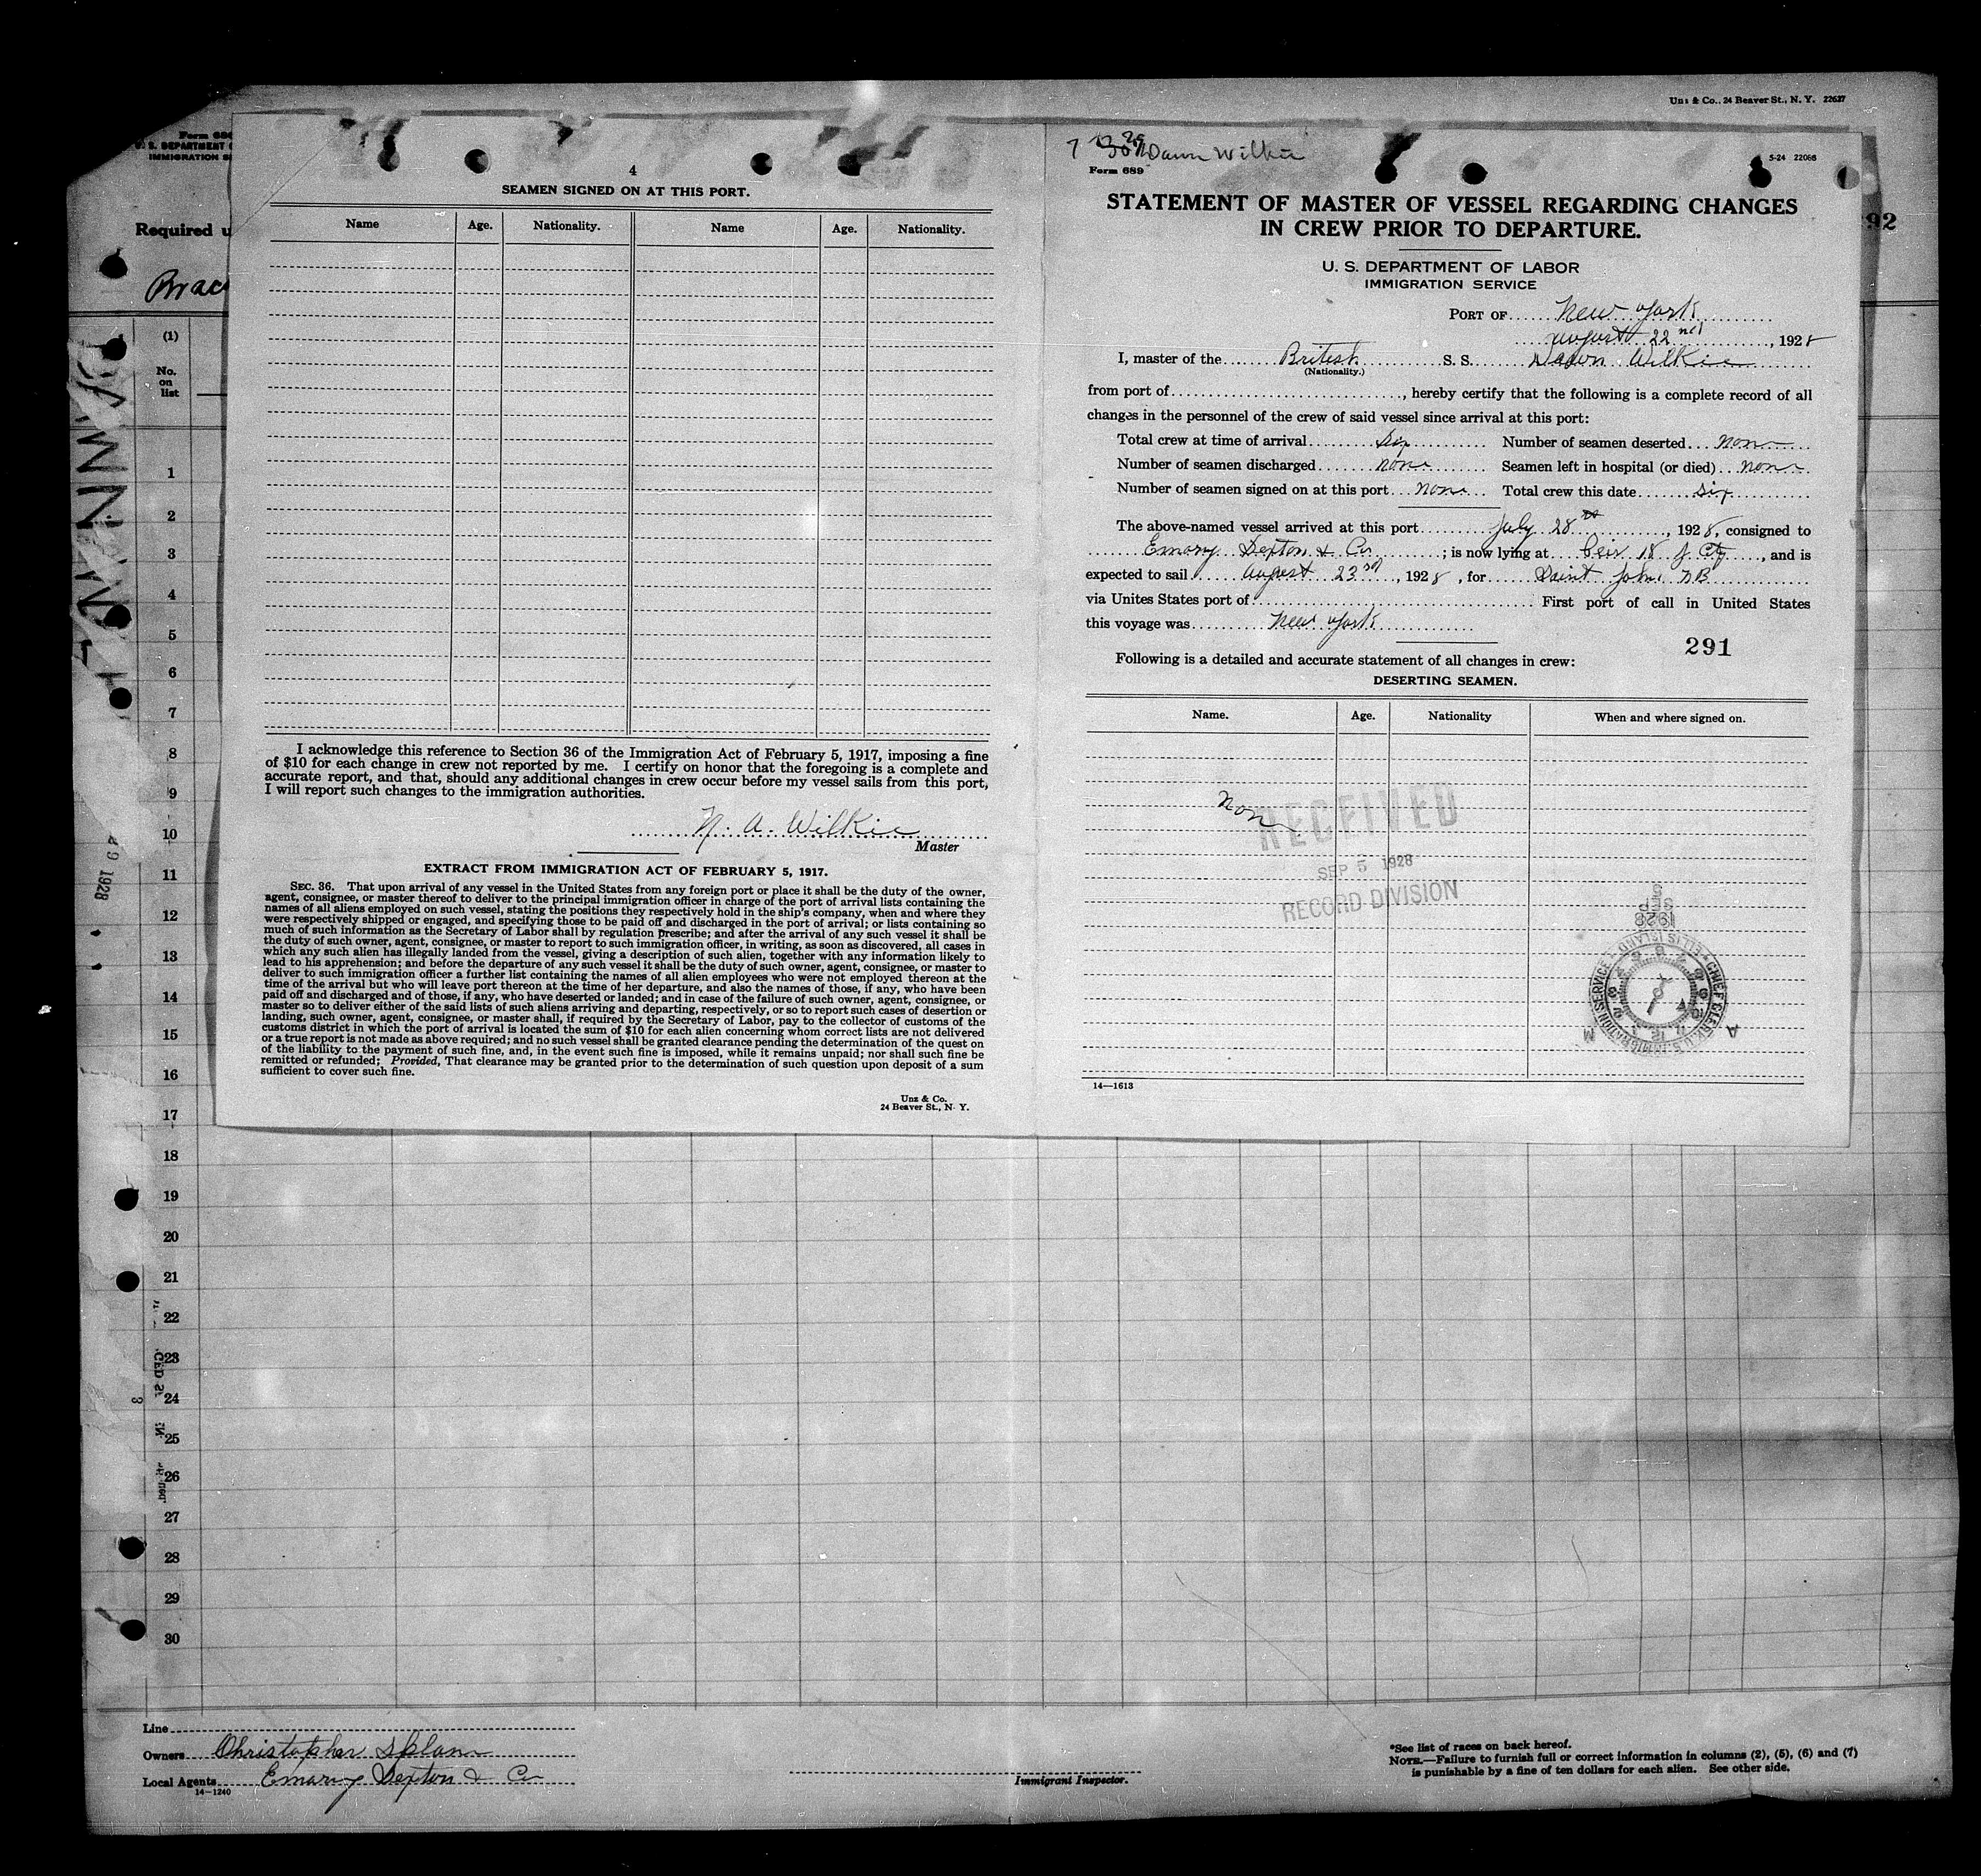 Unz & Co., 24 Beaver St., N. Y. 22627
Form 686
U. S. DEPARTMENT
IMMIGRATION
Required
(1)
No.
on
list
1
2
3
4
5
6
7
8
9
10
11
12
13
14
15
16
17
18
19
20
21
22
23
24
25
26
27
28
29
30
4
SEAMEN SIGNED ON AT THIS PORT.
Name Age. Nationality. Name Age. Nationality.
I acknowledge this reference to Section 36 of the Immigration Act of February 5, 1917, imposing a fine
of $10 for each change in crew not reported by me. I certify on honor that the foregoing is a complete and
accurate report, and that, should any additional changes in crew occur before my vessel sails from this port,
I will report such changes to the immigration authorities.
N. A. Wilkie
Master
EXTRACT FROM IMMIGRATION ACT OF FEBRUARY 5, 1917.
SEC. 36. That upon arrival of any vessel in the United States from any foreign port or place it shall be the duty of the owner,
agent, consignee, or master thereof to deliver to the principal immigration officer in charge of the port of arrival lists containing the
names of all aliens employed on such vessel, stating the positions they respectively hold in the ship's company, when and where they
were respectively shipped or engaged, and specifying those to be paid off and discharged in the port of arrival; or lists containing so
much of such information as the Secretary of Labor shall by regulation prescribe; and after the arrival of any such vessel it shall be
the duty of such owner, agent, consignee, or master to report to such immigration officer, in writing, as soon as discovered, all cases in
which any such alien has illegally landed from the vessel, giving a description of such alien, together with any information likely to
lead to his apprehension; and before the departure of any such vessel it shall be the duty of such owner, agent, consignee, or master to
deliver to such immigration officer a further list containing the names of all alien employees who were not employed thereon at the
time of the arrival but who will leave port thereon at the time of her departure, and also the names of those, if any, who have been
paid off and discharged and of those, if any, who have deserted or landed; and in case of the failure of such owner, agent, consignee, or
master so to deliver either of the said lists of such aliens arriving and departing, respectively, or so to report such cases of desertion or
landing, such owner, agent, consignee, or master shall, if required by the Secretary of Labor, pay to the collector of customs of the
customs district in which the port of arrival is located the sum of $10 for each alien concerning whom correct lists are not delivered
or a true report is not made as above required; and no such vessel shall be granted clearance pending the determination of the quest on
of the liability to the payment of such fine, and, in the event such fine is imposed, while it remains unpaid; nor shall such fine be
remitted or refunded; Provided, That clearance may be granted prior to the determination of such question upon deposit of a sum
sufficient to cover such fine.
Unz & Co.
24 Beaver St., N. Y.
Dawn Wilkie
Form 689
5-24 22086
STATEMENT OF MASTER OF VESSEL REGARDING CHANGES
IN CREW PRIOR TO DEPARTURE.
U. S. DEPARTMENT OF LABOR
IMMIGRATION SERVICE
PORT OF New York
august 22nd, 1928
I, master of the British S. S. Dawn Wilkie
(Nationality.)
from port of, hereby certify that the following is a complete record of all
changes in the personnel of the crew of said vessel since arrival at this port:
Total crew at time of arrival Six Number of seamen deserted none
Number of seamen discharged none Seamen left in hospital (or died) none
Number of seamen signed on at this port none Total crew this date Six
The above-named vessel arrived at this port July 28, 1928, consigned to
Emory Sexton & Co; is now lying at 18 J City, and is
expected to sail august 23rd, 1928, for Saint John NB
via Unites States port of First port of call in United States
this voyage was New York
291
Following is a detailed and accurate statement of all changes in crew:
DESERTING SEAMEN.
Name. Age. Nationality When and where signed on.
non
RECEIVED
SEP 5 1928
RECORD DIVISION
SEP 5
1928
CHIEF CLERK U.S. IMMIGRATION SERVICE ELLIS ISLAND
A M
14—1613
92
9 1928
Line
Owners Christopher Splane
Local Agents Emory Sexton & Co
14—1240
Immigrant Inspector.
*See list of races on back hereof.
NOTE.—Failure to furnish full or correct information in columns (2), (5), (6) and (7)
is punishable by a fine of ten dollars for each alien. See other side.